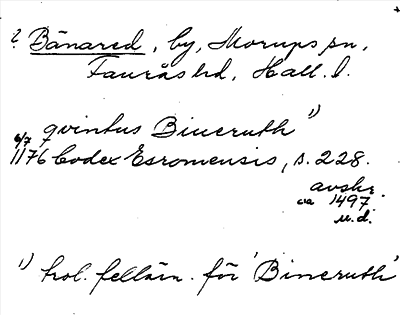 ? Bänared, by, Morups sn,
Fauråshd, Hall. l.
qvintus Bineruth 1)
6/7 1176 Codex Esromensis, s. 228.
avskr.
ca 1497.
u.d.
1) trol. felläsn. för 'Bineruth'